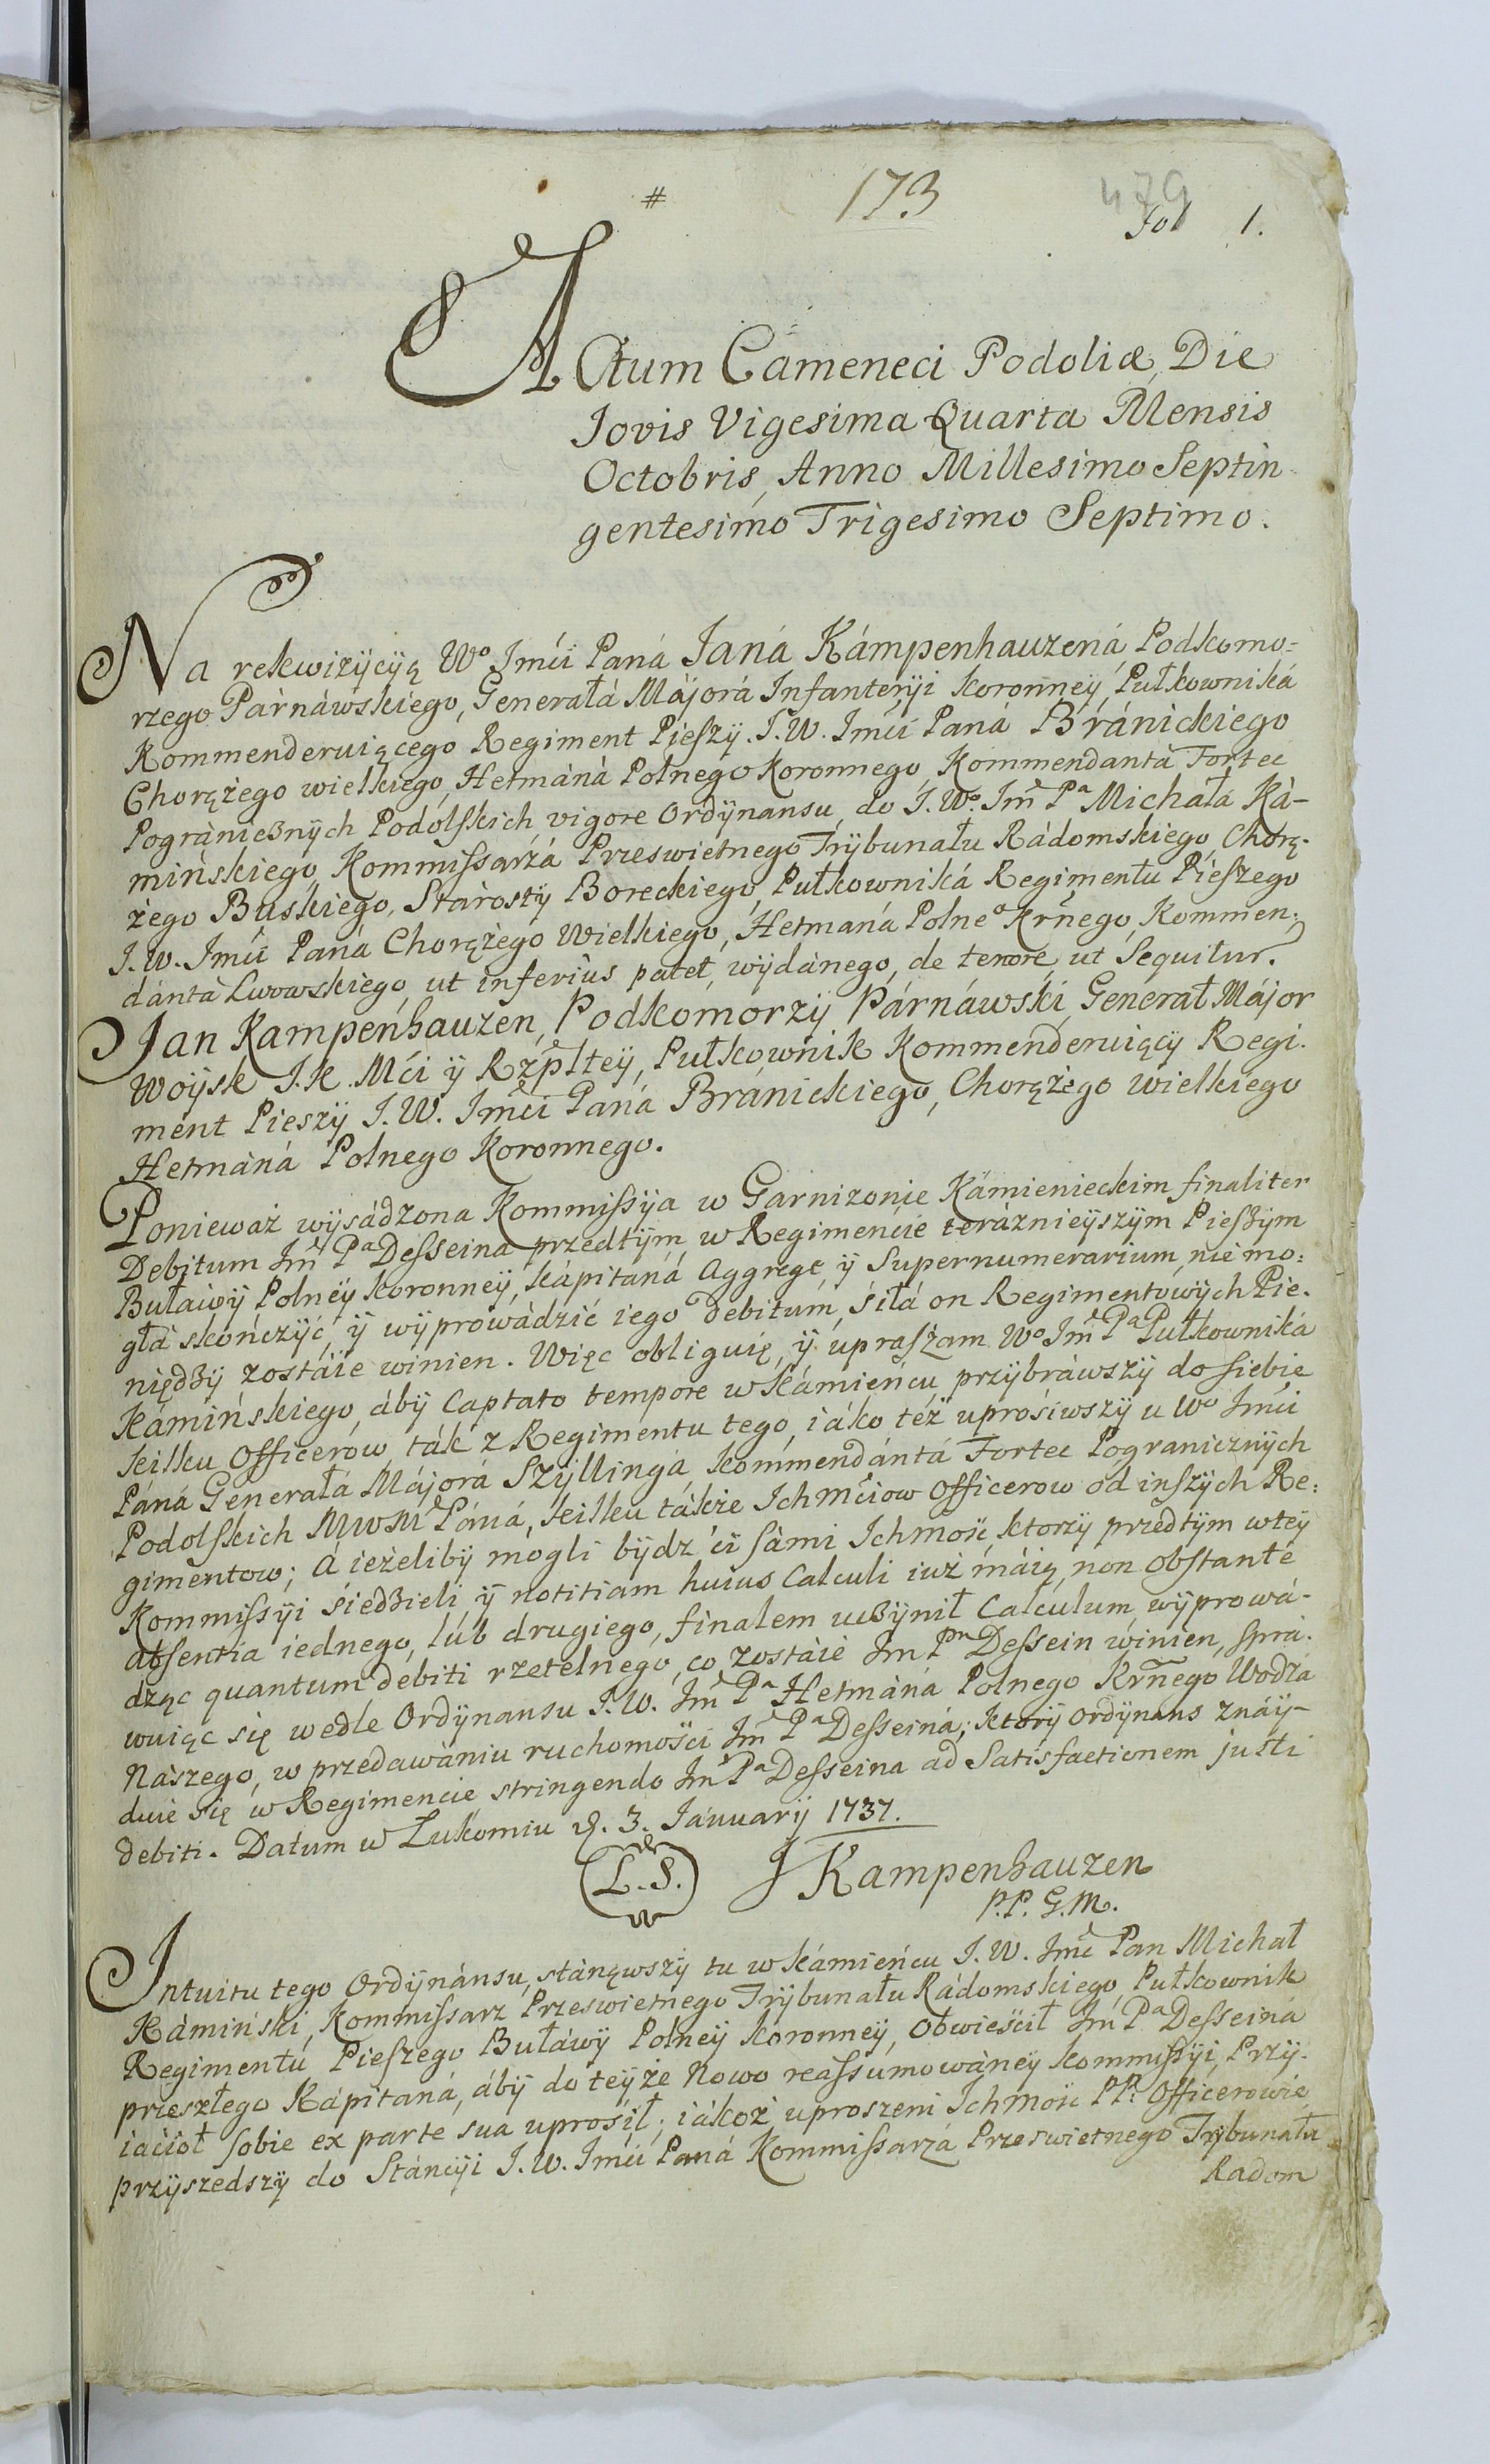 #
173
479
Fol 1.
ACtum Cameneci Podoliæ, Die
Jovis Vigesima Quarta Mensis
Octobris, Anno Millesimo Septin
gentesimo Trigesimo Septimo.
Na rekwizÿcÿą Wº Jmći Paná Janá Kámpenhauzená, Podkomo=
rzego Párnáwskiego, Generałá Májorá Infanterÿi Koronneÿ, Pułkowniká
Kommenderuiącego Regiment Pieszÿ. J. W. Jmći Paná Bránickiego
Chorążego wielkiego, Hetmáná Polnego Koronnego, Kommendantá Fortec
Pogránicznÿch Podolskich, vigore Ordÿnansu, do J. Wº. Jmć Pª Michałá Ká-
mińskiego, Kommissarzá Prześwietnego Trÿbunału Rádomskiego, Chorą-
żego Buskiego, Stárostÿ Boreckiego, Pułkowniká Regimentu Pieszego
J. W. Jmći Paná Chorążego Wielkiego, Hetmaná Polneº Krñego, Kommen.
dántá Lwowskiego, ut inferius patet, wÿdánego, de tenore, ut Sequitur.
Jan Kampenhauzen, Podkomorzÿ Párnáwski, Generał Májor
Woÿsk J. K. Mći ÿ Rzpltеÿ, Pułkownik Kommenderuiącÿ Regi.
ment Pieszÿ J. W. Jmći Paná Bránickiego, Chorążego wielkiego
Hetmáná Polnego Koronnego.
Ponieważ wÿsádzona Kommissÿa w Garnizonie Kámienieckim finaliter
Debitum Jmć Pª Desseina przedtÿm w Regimencie teráznieÿszÿm Pieszÿm
Buławÿ Polneÿ Koronneÿ, Kápitaná Aggregé, ÿ Supernumerarium, nie mo:
głá skończÿć, ÿ wÿprowádzić iego debitum, siłá on Regimentowÿch Pie.
niędzÿ zostáie winien. Więc obliguię, ÿ upraszam Wº Jmć Pª Pułkowniká
Kámińskiego, ábÿ Captato tempore w Kámieńcu, przÿbráwszÿ do siebie
kilku Officerów, ták z Regimentu tego, iáko też uprosiwszÿ u Wº Jmći
Páná Generałá Májorá Szÿllingá, Kommendántá Fortec Pogranicznÿch
Podolskich MWM Páná, kilku tákże Ichmćiow Officerow od inszÿch Re:
gimentow; á ieżelibÿ mogli bÿdz ći sámi Ichmość, ktorzÿ przedtÿm w teÿ
Kommissÿi siedzieli, ÿ notitiam huius Calculi iuż máią, non obstante
absentia iednego, lub drugiego, finalem uczÿnił Calculum, wÿprowá-
dząc quantum debiti rzetelnego, co zostáie Jmć Pan Dessein winien, sprá.
wuiąc się wedle Ordÿnansu J. W. Jmć Pª Hetmáná Polnego Krñego Wodzá
Nászego, w przedawániu ruchomości Jmć Pª Desseiná; ktorÿ Ordÿnans znáÿ-
duie się w Regimencie stringendo Jmć Pª Desseina ad Satisfactionem justi
debiti. Datum w Łukomiu d. 3. Januarÿ 1737.
(L.S.) J Kampenhauzen
P.P. G.M.
Intuitu tego Ordÿnánsu, stánąwszÿ tu w Kámieńcu J. W. Jmć Pan Michał
Kámiński, Kommissarz Prześwietnego Trÿbunału Rádomskiego, Pułkownik
Regimentu Pieszego Buławÿ Polneÿ Koronneÿ, obwieścił Jmć Pª Desseiná
przeszłego Kápitaná, ábÿ do teÿże Nowo reassumowáneÿ Kommissÿi, Przÿ.
iaciół sobie ex parte sua uprosił; iákoż uproszeni Ichmość PP. Officerowie
przÿszedszÿ do Stáncÿi J. W. Jmći Paná Kommissarzá Prześwietnego Trÿbunału
Radom